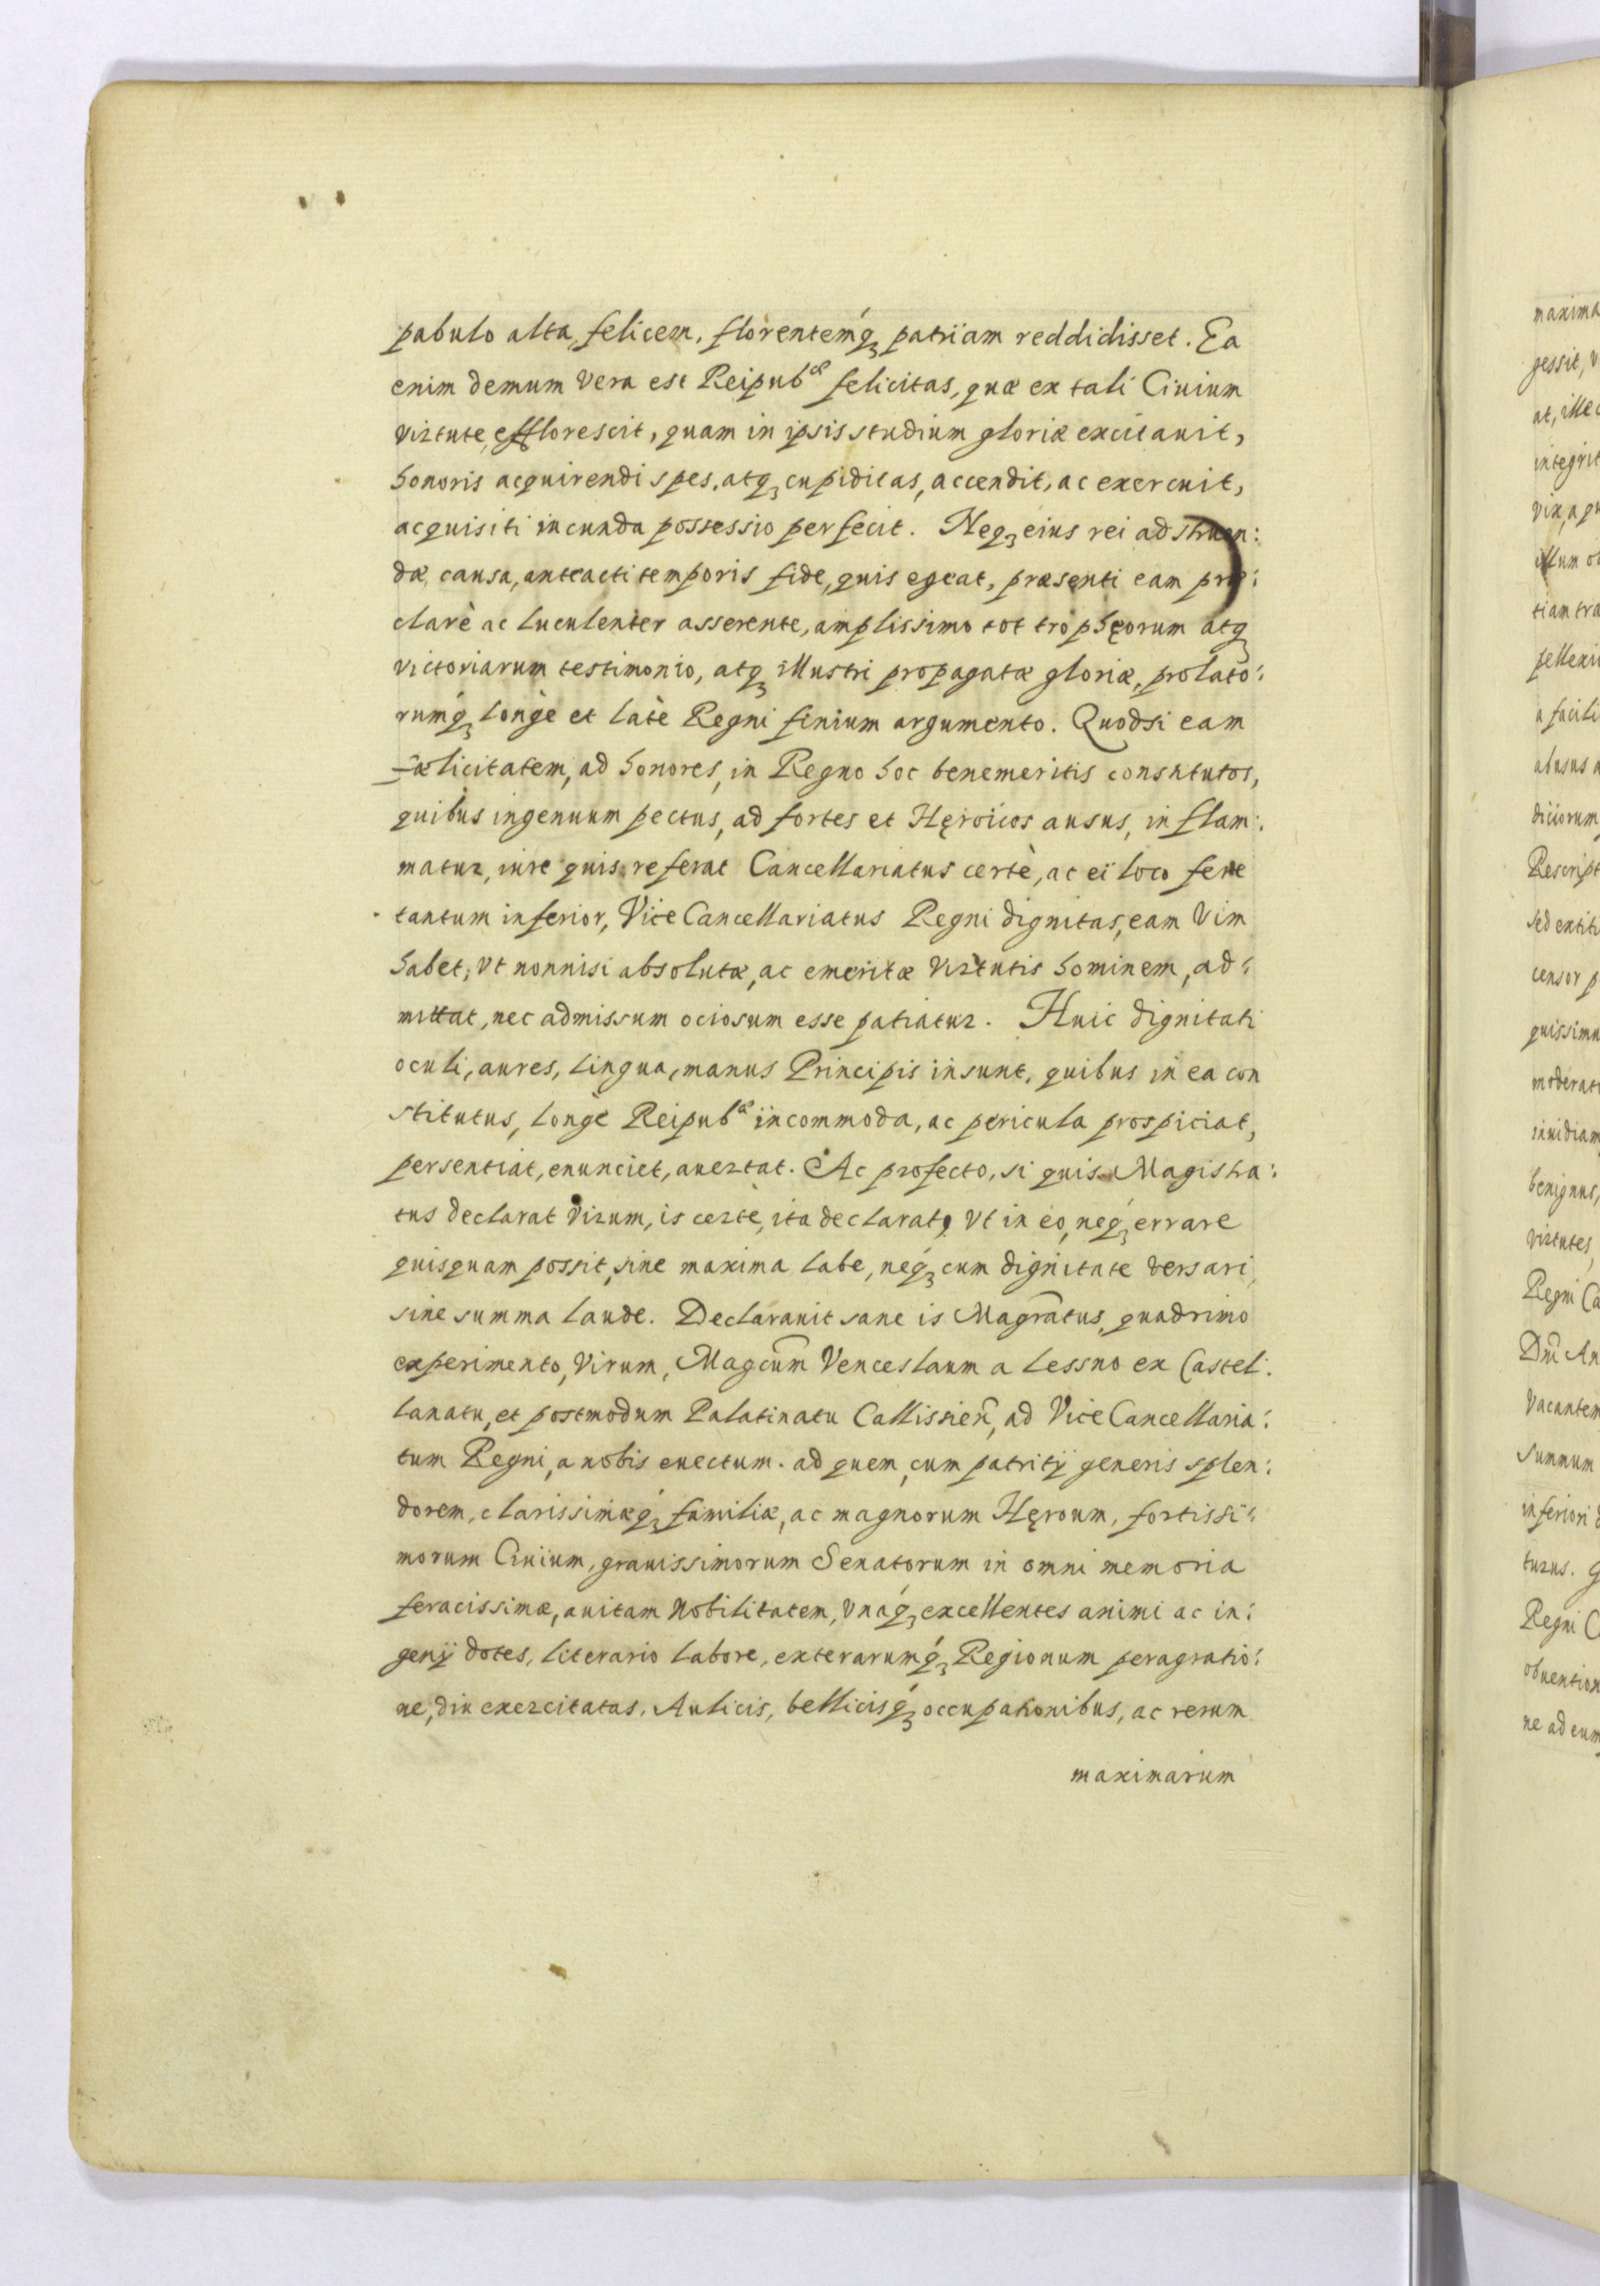 pabulo alta, felicem, florentemq́ꝫ patriam reddidisset. Ea
enim demum vera est Reipubᶜᵉ felicitas, quæ ex tali Ciuium
virtute, efflorescit, quam in ipsis studium gloriæ excitauit,
honoris acquirendi spes, atqꝫ cupiditas, accendit, ac exercuit,
acquisiti iucunda possessio perfecit. Neqꝫ eius rei adstruen:
dæ causa, anteacti temporis fide, quis egeat, præsenti eam præ:
clarè ac luculenter asserente, amplissimo tot trophęorum atqꝫ
victoriarum testimonio, atqꝫ illustri propagatæ gloriæ, prolato:
rumq́ꝫ longè et latè Regni finium argumento. Quodsi eam
fælicitatem, ad honores, in Regno hoc benemeritis constitutos,
quibus ingenuum pectus, ad fortes et Hęroicos ausus, inflam:
matur, iure quis referat Cancellariatus certè, ac ei loco fere
tantum inferior, ViceCancellariatus Regni dignitas, eam vim
habet, vt nonnisi absolutæ, ac emeritæ virtutis hominem, ad:
mittat, nec admissum ociosum esse patiatur. Huic dignitati
oculi, aures, lingua, manus Principis insunt, quibus in ea con
stitutus, longè Reipubᶜᵉ incommoda, ac pericula prospiciat,
persentiat, enunciet, auertat. Ac profecto, si quis Magistra:
tus declarat virum, is certè, ita declarat, vt in eo, neq́ꝫ errare
quisquam possit, sine maxima labe, neq́ꝫ cum dignitate versari,
sine summa laude. Declarauit sane is Magr̃atus, quadrimo
experimento, virum, Magcũm Venceslaum a Lessno ex Castel:
lanatu, et postmodum Palatinatu Callissieñ, ad ViceCancellaria:
tum Regni, a nobis euectum. ad quem, cum patritij generis splen:
dorem, clarissimæq́ꝫ familiæ, ac magnorum Hęroum, fortissi:
morum Ciuium, grauissimorum Senatorum in omni memoria
feracissimæ, auitam Nobilitatem, vnaq́ꝫ excellentes animi ac in:
genij dotes, literario labore, exterarumq́ꝫ Regionum peragratio:
ne, diu exercitatas, Aulicis, bellicisq́ꝫ occupationibus, ac rerum
maximarum